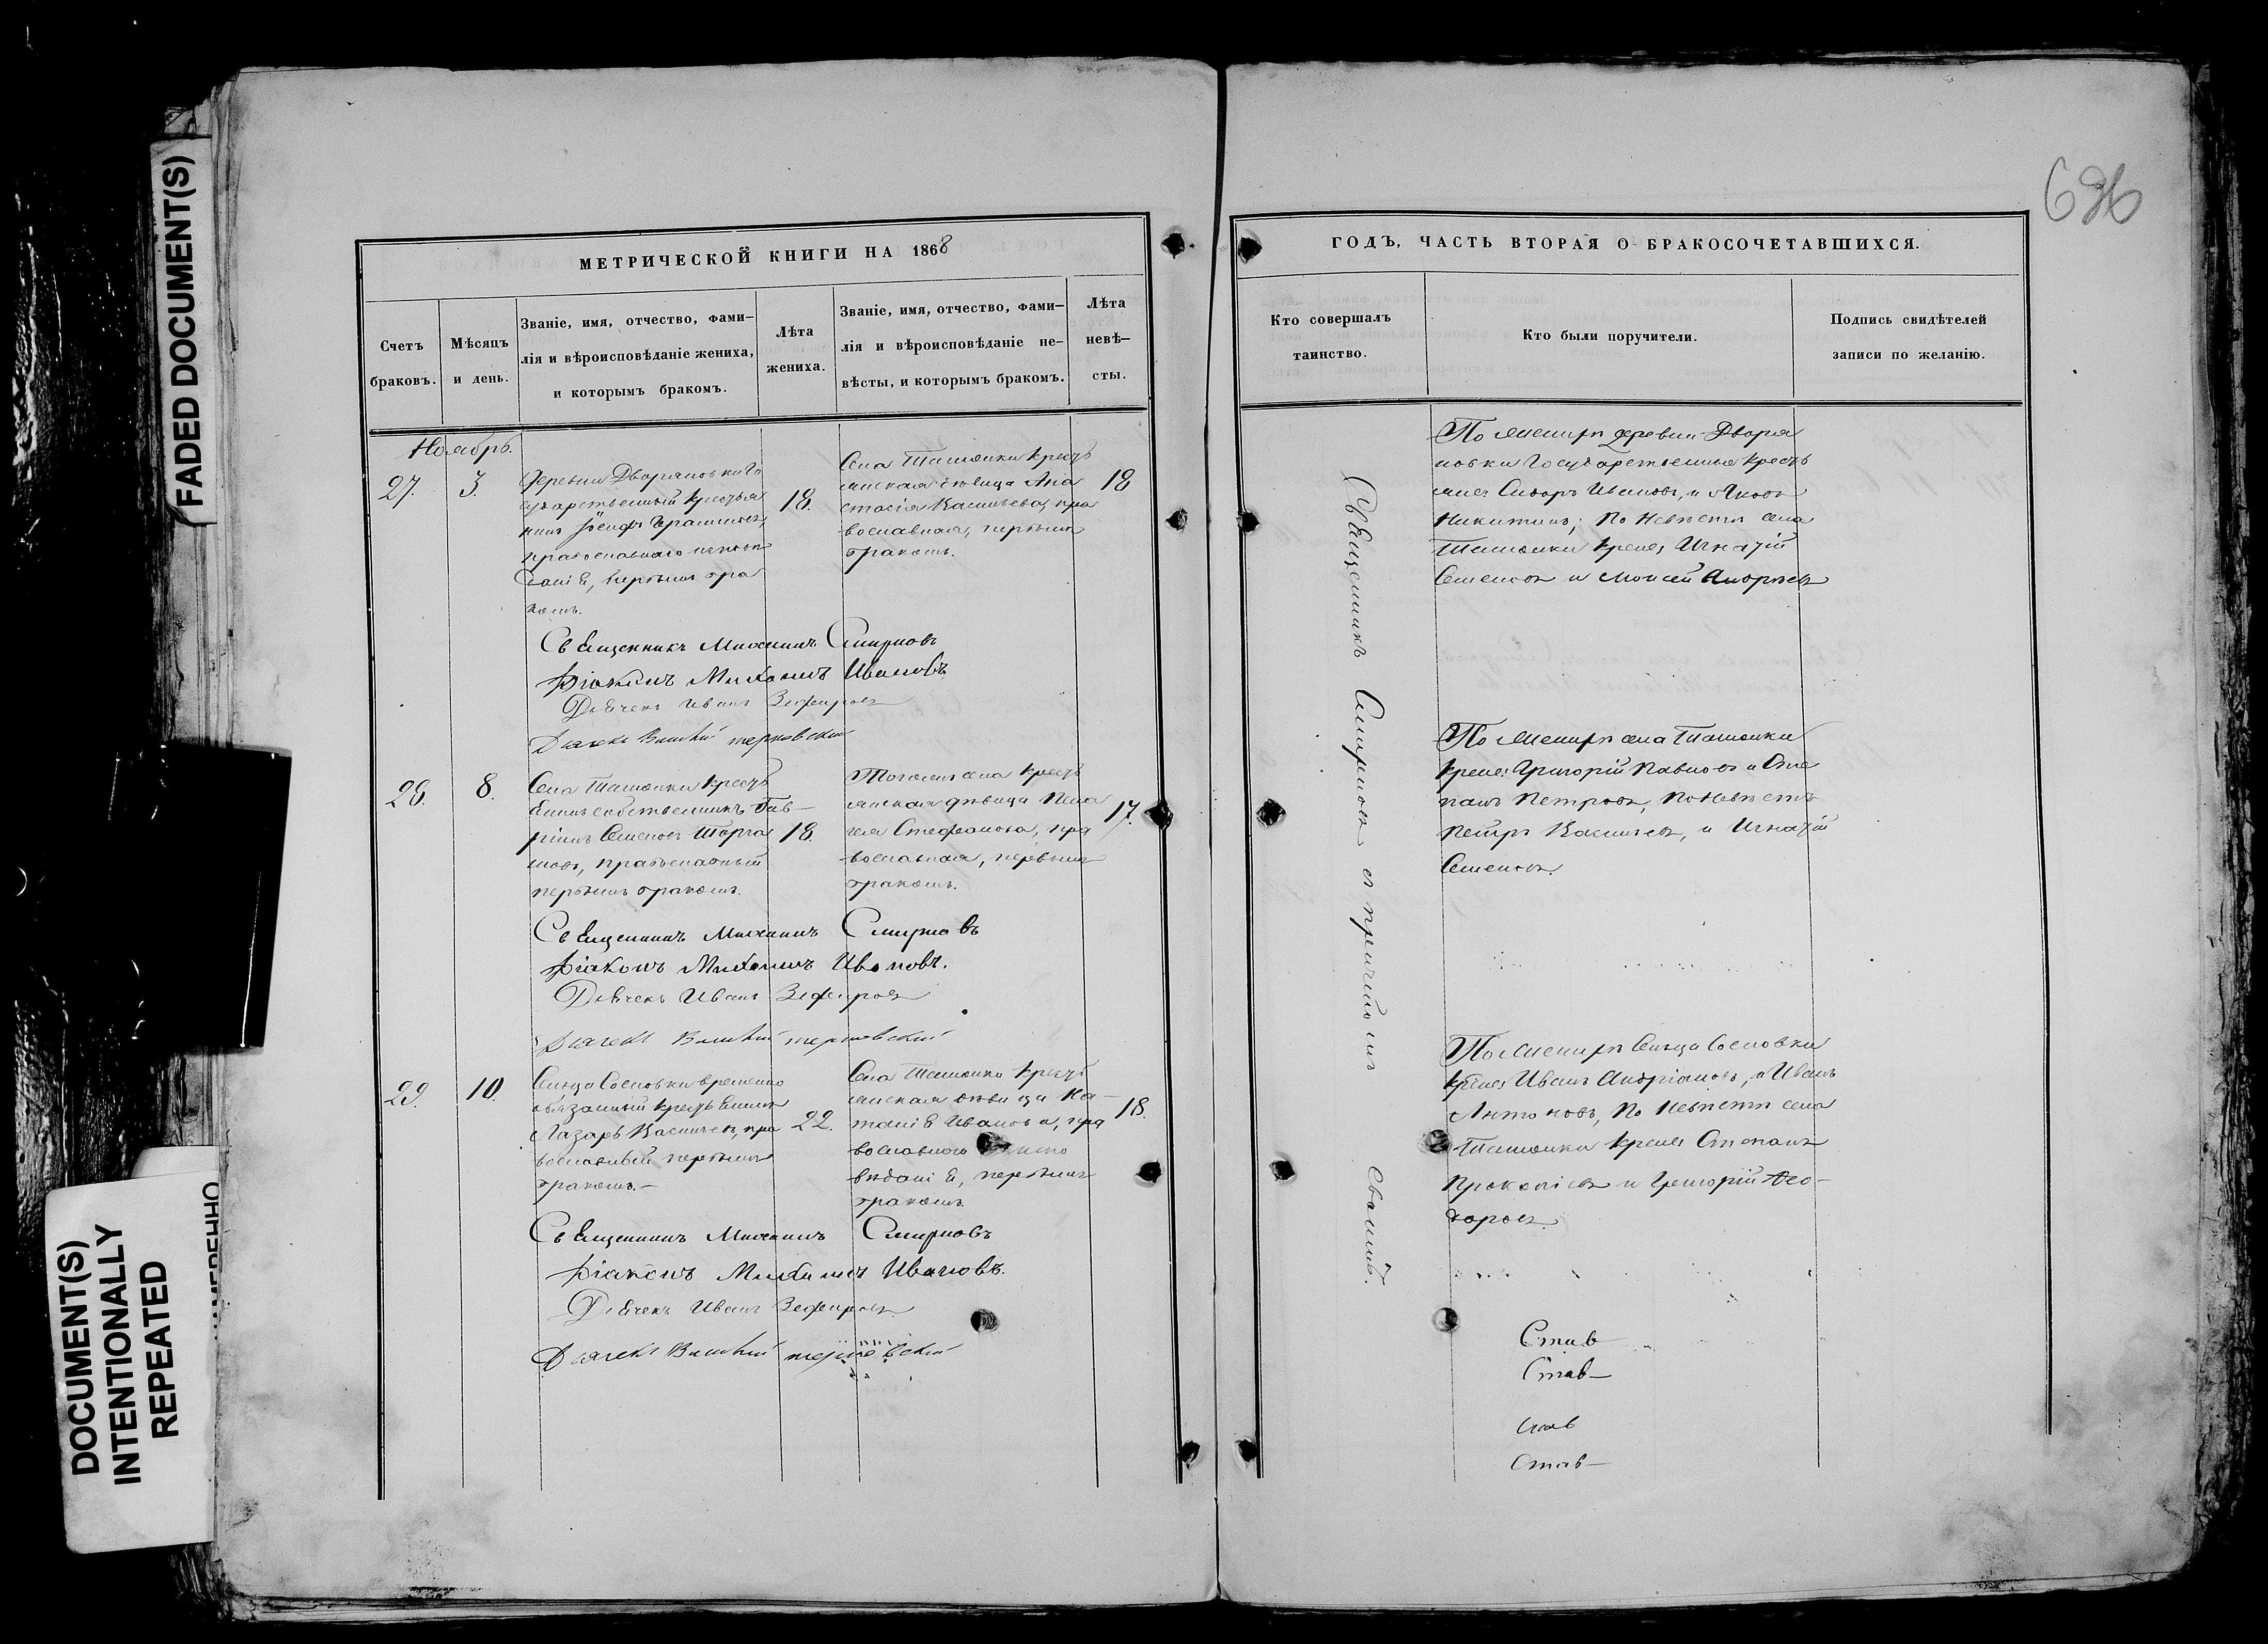 FADED DOCUMENT(S)
DOCUMENT(S)
INTENTIONALLY
REPEATED
696
МЕТРИЧЕСКОЙ КНИГИ НА 1868
Счетъ
браковъ.
Мѣсяцъ
и день.
Званіе, имя, отчество, фами-
лія и вѣроисповѣданіе жениха,
и которымъ бракомъ.
Лѣта
жениха.
Званіе, имя, отчество, фами-
лія и вѣроисповѣданіе не-
вѣсты, и которымъ бракомъ.
Лѣта
невѣ-
сты.
Ноябрь.
27.
3.
Деревни Дворяновки Го
сударственный крестья
нинъ
православнаго исповѣ
данія, первымъ бра
комъ.
18.
Села Ташовки кресть
янская дѣвица Ана
стасія Васильева, пра
вославная, первымъ
бракомъ.
18
Священникъ Михаилъ Смирновъ
Діаконъ Михаилъ Ивановъ
Дьячекъ Иванъ Зефировъ
Дьячекъ
28.
8.
Села Ташовки кресть
янинъ собственникъ Гав-
ріилъ Семеновъ
православный
первымъ бракомъ.
18.
Тогоже села кресть
янская дѣвица Пела
гея Стефанова, пра
вославная, первымъ
бракомъ.
17.
Священникъ Михаилъ Смирновъ
Діаконъ Михаилъ Ивановъ.
Дьячекъ Иванъ Зефировъ
Дьячекъ
29.
10.
Сельца Сосновки временно
обязанный крестьянинъ
Лазарь Васильевъ, пра
вославный первымъ
бракомъ.-
22.
Села Ташовки кресть
янская дѣвица На-
талія Иванова, пра
вославнаго
вѣданія, первымъ
бракомъ.
18.
Священникъ Михаилъ Смирновъ
Діаконъ Михаилъ Ивановъ.
Дьячекъ Иванъ Зефировъ
Дьячекъ
ГОДЪ, ЧАСТЬ ВТОРАЯ О БРАКОСОЧЕТАВШИХСЯ.
Кто совершалъ
таинство.
Кто были поручители.
Подпись свидѣтелей
записи по желанію.
Священникъ Смирновъ съ причтомъ своимъ.
По женихѣ деревни Дворя
новки Государственные кресть
яне Сидоръ Ивановъ, и Яковъ
Никитинъ; По Невѣстѣ села
Ташовки крест. Игнатій
Семеновъ и Моисей Андреевъ
По женихѣ села Ташовки
крест. Григорій Павловъ и Сте
панъ Петровъ, По Невѣстѣ
Петръ Васильевъ, и Игнатій
Семеновъ.
По женихѣ Сельца Сосновки
крест. Иванъ Андріановъ, и Иванъ
Антоновъ, По Невѣстѣ села
Ташовки крест. Степанъ
Прокопіевъ и Григорій Фео-
доровъ.